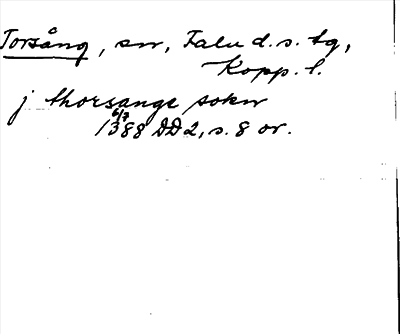 Torsång, sn, Falu d. s. tg,
Kopp. l.
j thorsange sokn
6/7
1388 DD2, s. 8 or.